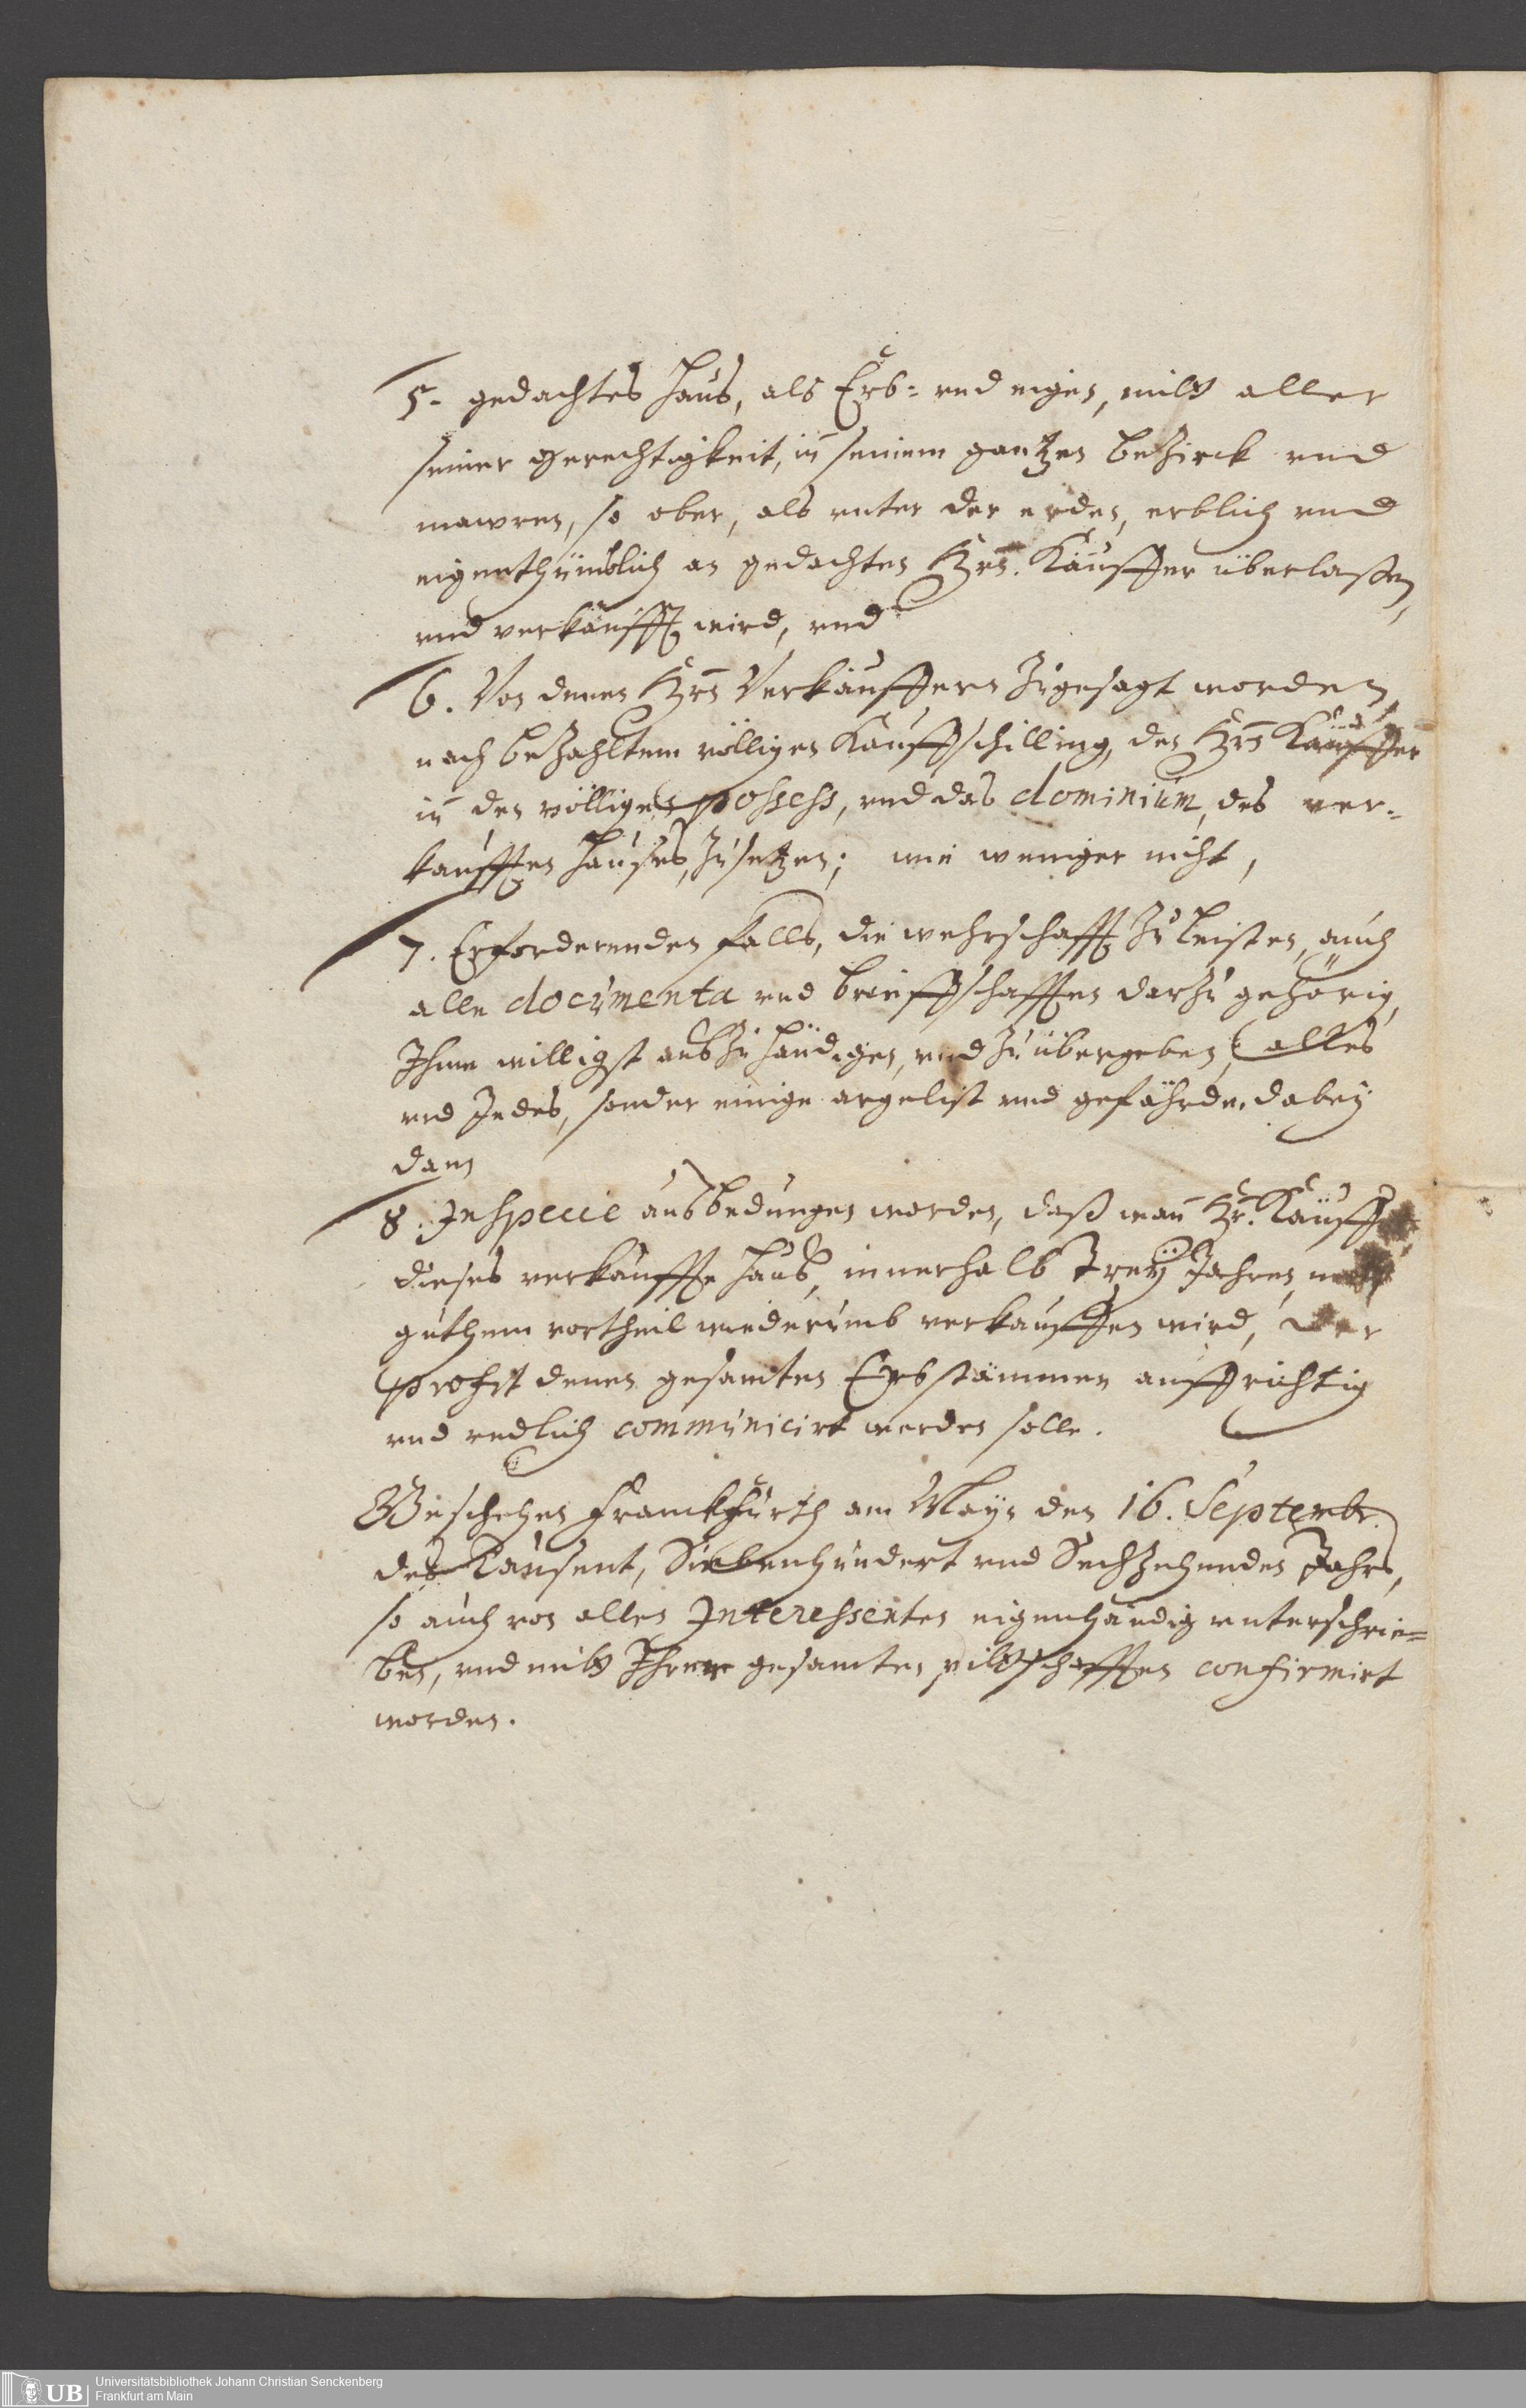 5. gedachtes Hauß, als Erb- und eigen, mitt aller
seiner gerechtigkeit, in seinem gantzen beZirck und
mawren, so ober, als unter der erden, erblich und
eigenthümblich an gedachten Hrn. Käuffer überlaßen,
und verkaufft wird, und
6. Von denen Hrn Verkäuffern Zugesagt worden,
nach beZahltem völligen Kauffschilling, den Hrn Käuffer
in den völligen possess, und das dominium, des ver-
kaufften Haußes, Zu setzen; wie weniger nicht,
7. Erforderenden falls, die wehrschafft Zu leisten, auch
alle documenta und brieffschafften darZu gehörig,
Ihme willigst auszuhändigen, und Zu übergeben, alles
und Jedes, sonder einige argelist und gefährde, dabey
dann
8. In specie ausbedungen worden, daß wann Hr. Käuffer
dieses verkauffte Hauß, innerhalb Drey Jahren, mitt
guthem vortheil wiederumb verkauffen wird, der
profit denen gesamten Erbstämmen auffrichtig
und redlich communicirt werden solle.
Geschehen Franckfurth am Mayn den 16. Septembr.
des Tausent, Siebenhundert und SechZehenden Jahrs,
so auch von allen Interessenten eigenhändig unterschrie-
ben, und mitt Ihren gesamten pittschafften confirmirt
worden.
UB
Universitätsbibliothek Johann Christian Senckenberg
Frankfurt am Main